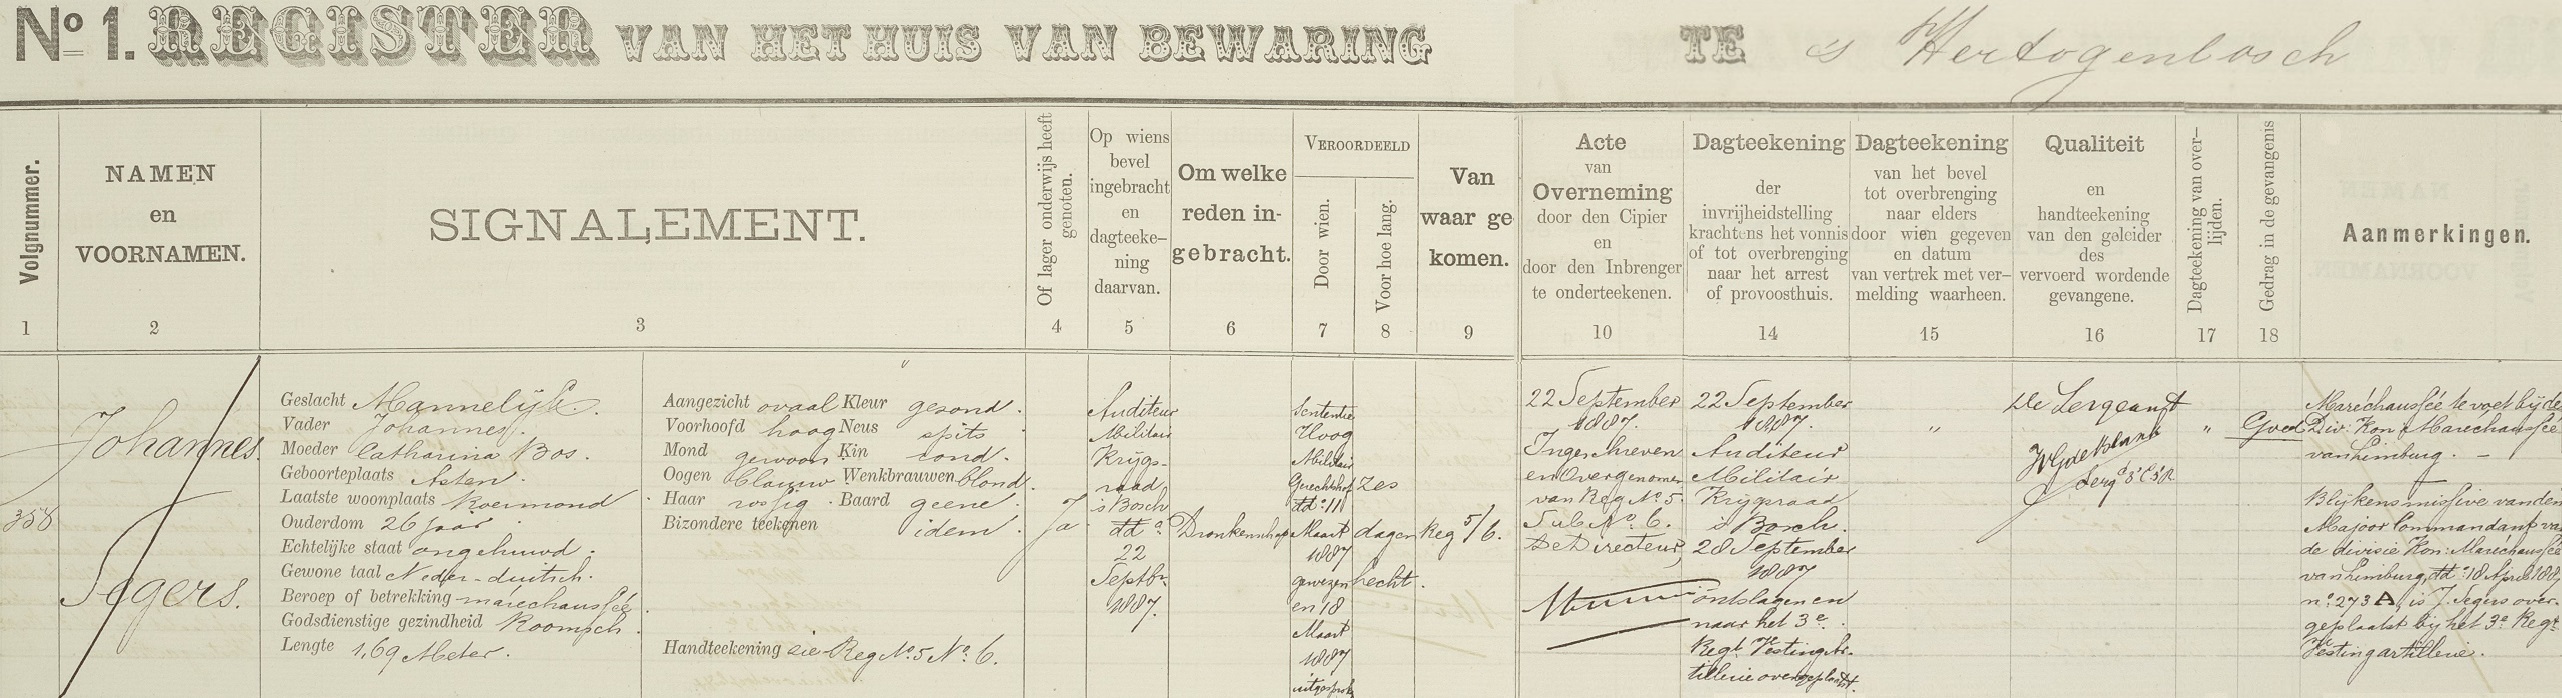 No 1. REGISTER VAN HET HUIS VAN BEWARING TE 's Hertogenbosch
Volgnummer.
1
NAMEN
en
VOORNAMEN.
2
SIGNALEMENT.
3
Of lager onderwijs heeft
genoten.
4
Op wiens
bevel
ingebracht
en
dagteeke-
ning
daarvan.
5
Om welke
reden in-
gebracht.
6
VEROORDEELD
Door wien.
7
Voor hoe lang.
8
Van
waar ge
komen.
9
Acte
van
Overneming
door den Cipier
en
door den Inbrenger
te onderteekenen.
10
Dagteekening
der
invrijheidstelling
krachtens het vonnis
of tot overbrenging
naar het arrest
of provoosthuis.
14
Dagteekening
van het bevel
tot overbrenging
naar elders
door wien gegeven
en datum
van vertrek met ver-
melding waarheen.
15
Qualiteit
en
handteekening
van den geleider
des
vervoerd wordende
gevangene.
16
Dagteekening van over-
lijden.
17
Gedrag in de gevangenis
18
Aanmerkingen.
358
Johannes.
Segers.
Geslacht Mannelijk.
Vader Johannes.
Moeder Catharina Bos.
Geboorteplaats Asten.
Laatste woonplaats Roermond
Ouderdom 26 jaar
Echtelijke staat ongehuwd.
Gewone taal Neder-duitsch.
Beroep of betrekking maréchaussée.
Godsdienstige gezindheid Roomsch.
Lengte 1,69 Meter.
"
Aangezicht ovaal Kleur gezond.
Voorhoofd hoog Neus spits
Mond gewoon Kin rond.
Oogen blauw Wenkbrauwen blond.
Haar rossig. Baard geene.
Bizondere teekenen idem.
Handteekening zie Reg No. 5 No. 6.
Ja
Auditeur
Militair
Krijgs-
raad
's Bosch
dd°
22
Septbr
1887.
Dronkenschap
Sententie
Hoog
Militair
Gerechtshof
dd: 11
Maart
1887
gewezen
en 18
Maart
1887
uitgespr.
zes
dagen
hecht.
Reg 5/6.
22 September
1887.
Ingeschreven
en Overgenomen
van Reg No. 5.
Sub No. 6.
De Directeur,
22 September
1887.
Auditeur
Militair
Krijgsraad
's Bosch.
28 September
1887
ontslagen en
naar het 3e.
Regt. Vesting Ar-
tillerie overgeplaatst.
"
De Sergeant
"
Goed
Maréchaussée te voet bij de
Div: Kon: Maréchaussée
van Limburg. —
Blijkens missive van den
Majoor Commandant van
de divisie Kon: Maréchaussée
van Limburg, dd: 18 April 188
no. 273 A, is J. Segers over-
geplaatst bij het 3e Regt.
Vestingartillerie.